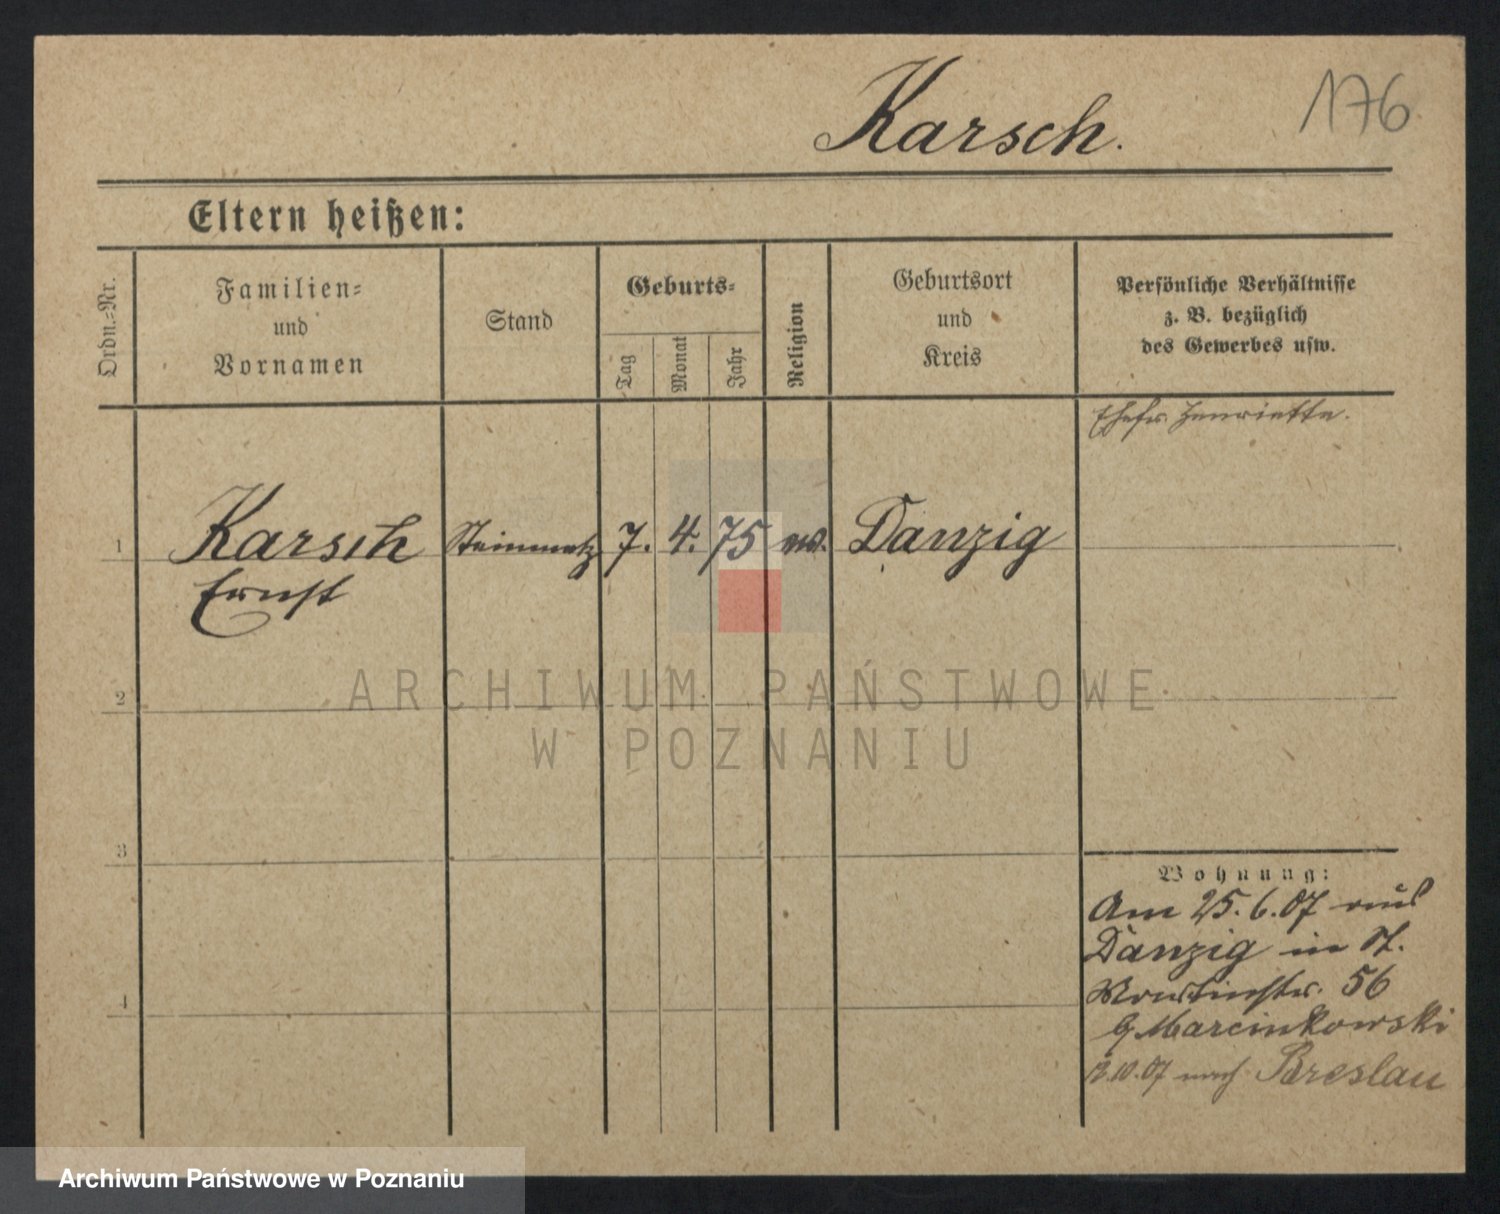 Karsch.
176
Eltern heißen:
Ordn.=Nr.
Familien=
und
Vornamen
Stand
Geburts=
Tag
Monat
Jahr
Religion
Geburtsort
und
Kreis
Persönliche Verhältnisse
z. B. bezüglich
des Gewerbes usw.
Ehefr. Henriette.
1
Karsch
Ernst
Steinmetz
7.
4.
75
ev.
Danzig
2
3
4
Wohnung:
Am 25.6.07 aus
Danzig in St.
Martinstr. 56
b/ Marcinkowski
2.10.07 nach Breslau
ARCHIWUM PAŃSTWOWE
W POZNANIU
Archiwum Państwowe w Poznaniu